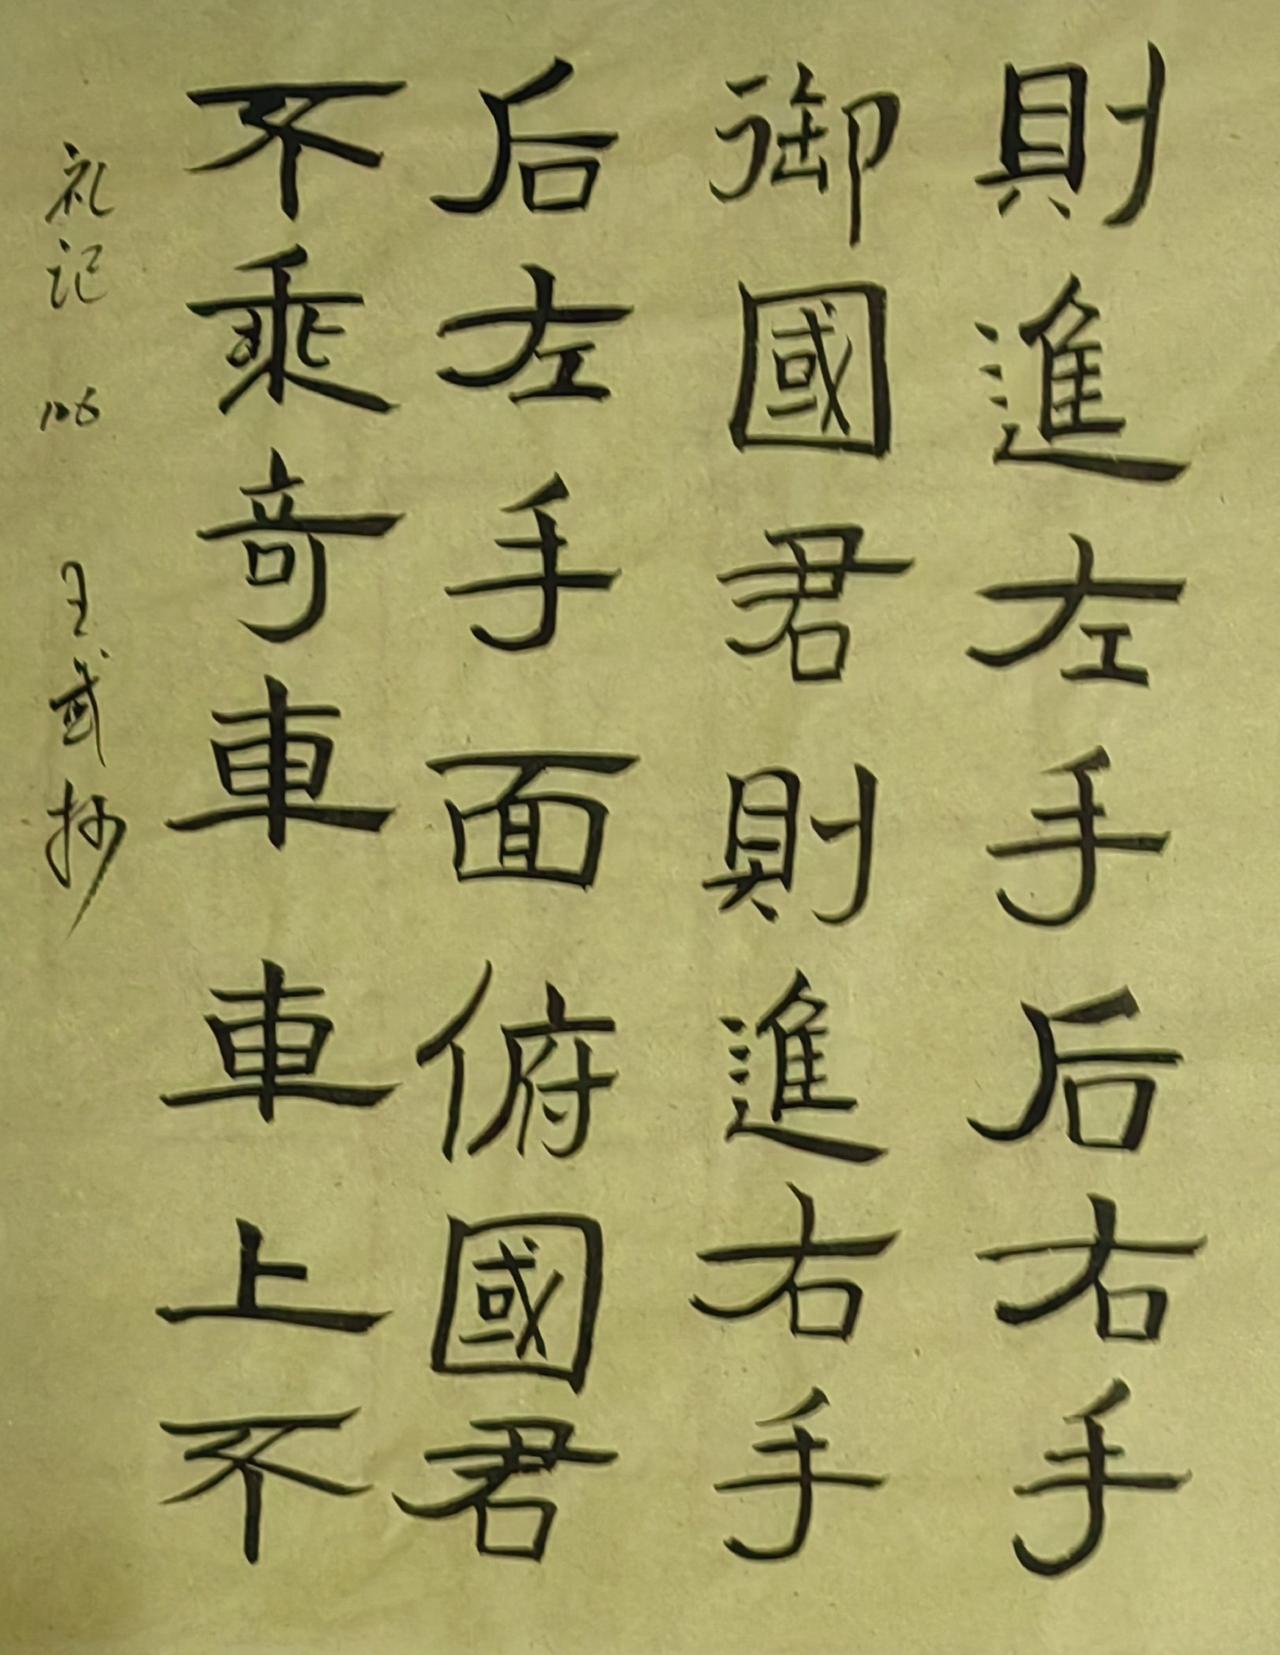 則進左手后右手
御國君則進右手
后左手面俯國君
不乘奇車車上不
礼记 106 王武抄